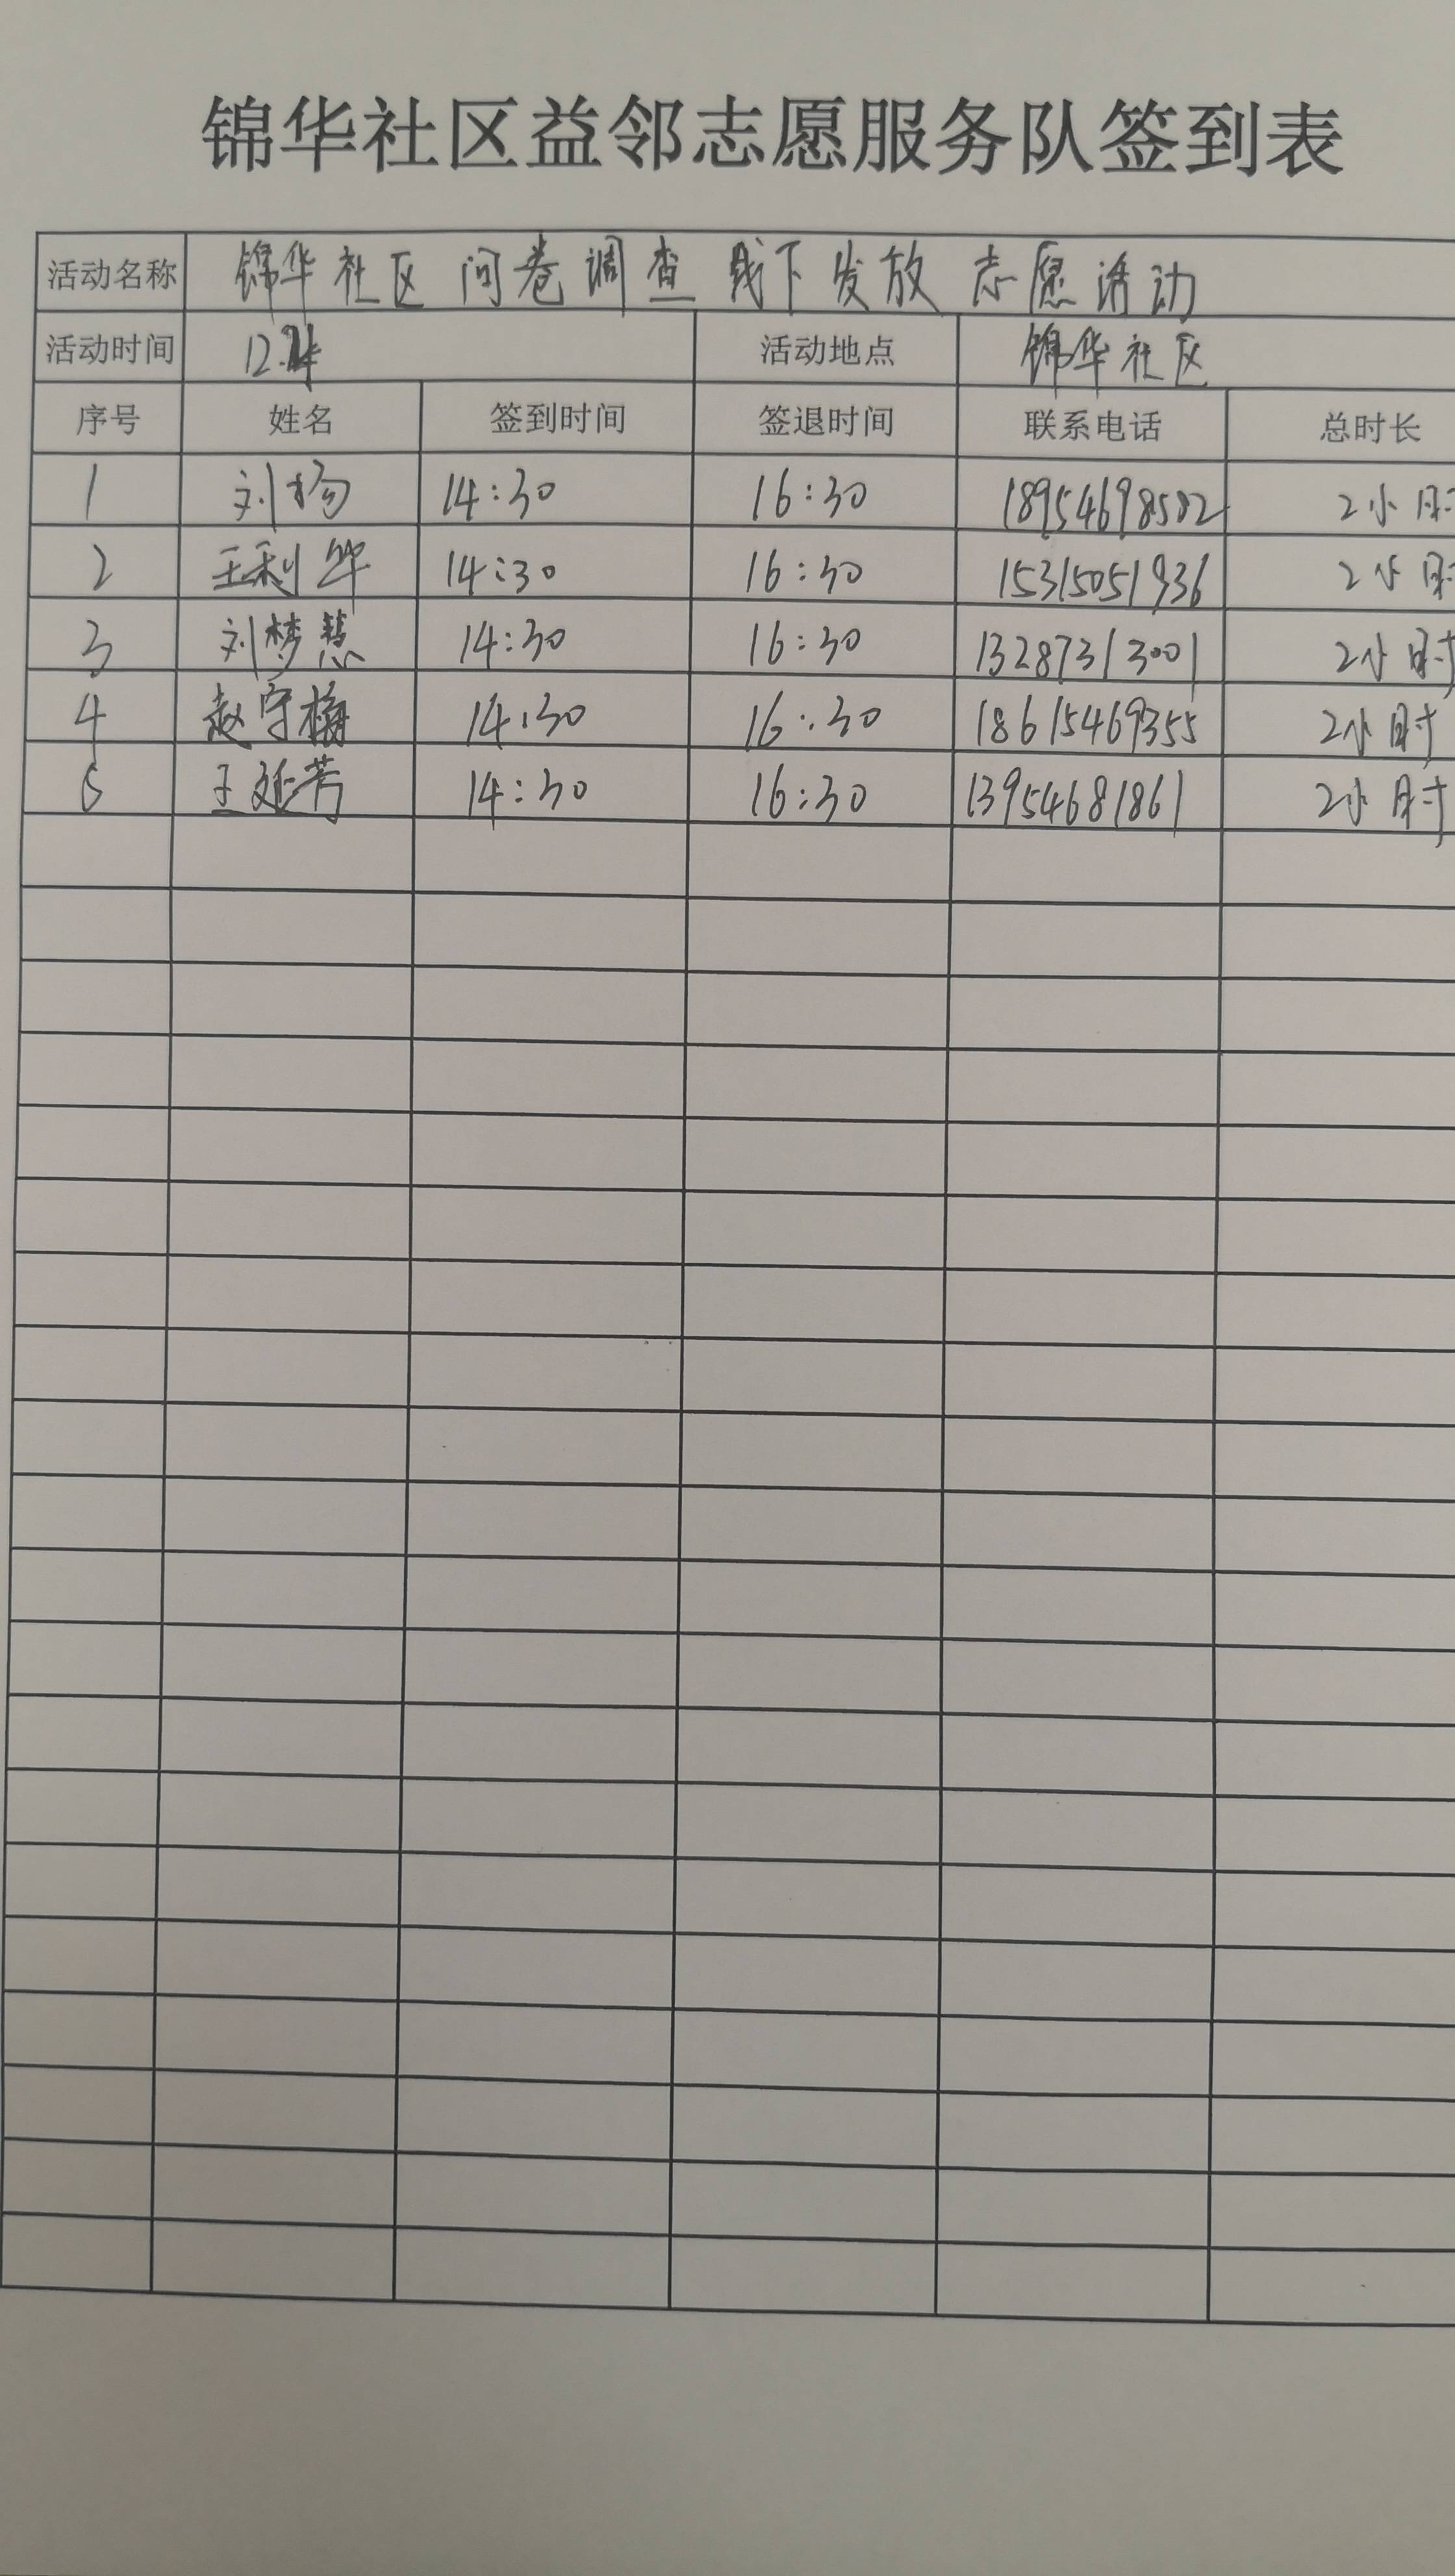 锦华社区益邻志愿服务队签到表
活动名称 锦华社区问卷调查线下发放志愿活动
活动时间 12.24 活动地点 锦华社区
序号 姓名 签到时间 签退时间 联系电话 总时长
1 刘杨 14:30 16:30 18954698502 2小时
2 王利华 14:30 16:30 15315051936 2小时
3 刘梦慧 14:30 16:30 13287313001 2小时
4 赵守梅 14:30 16:30 18615469355 2小时
5 王延芳 14:30 16:30 13954681861 2小时